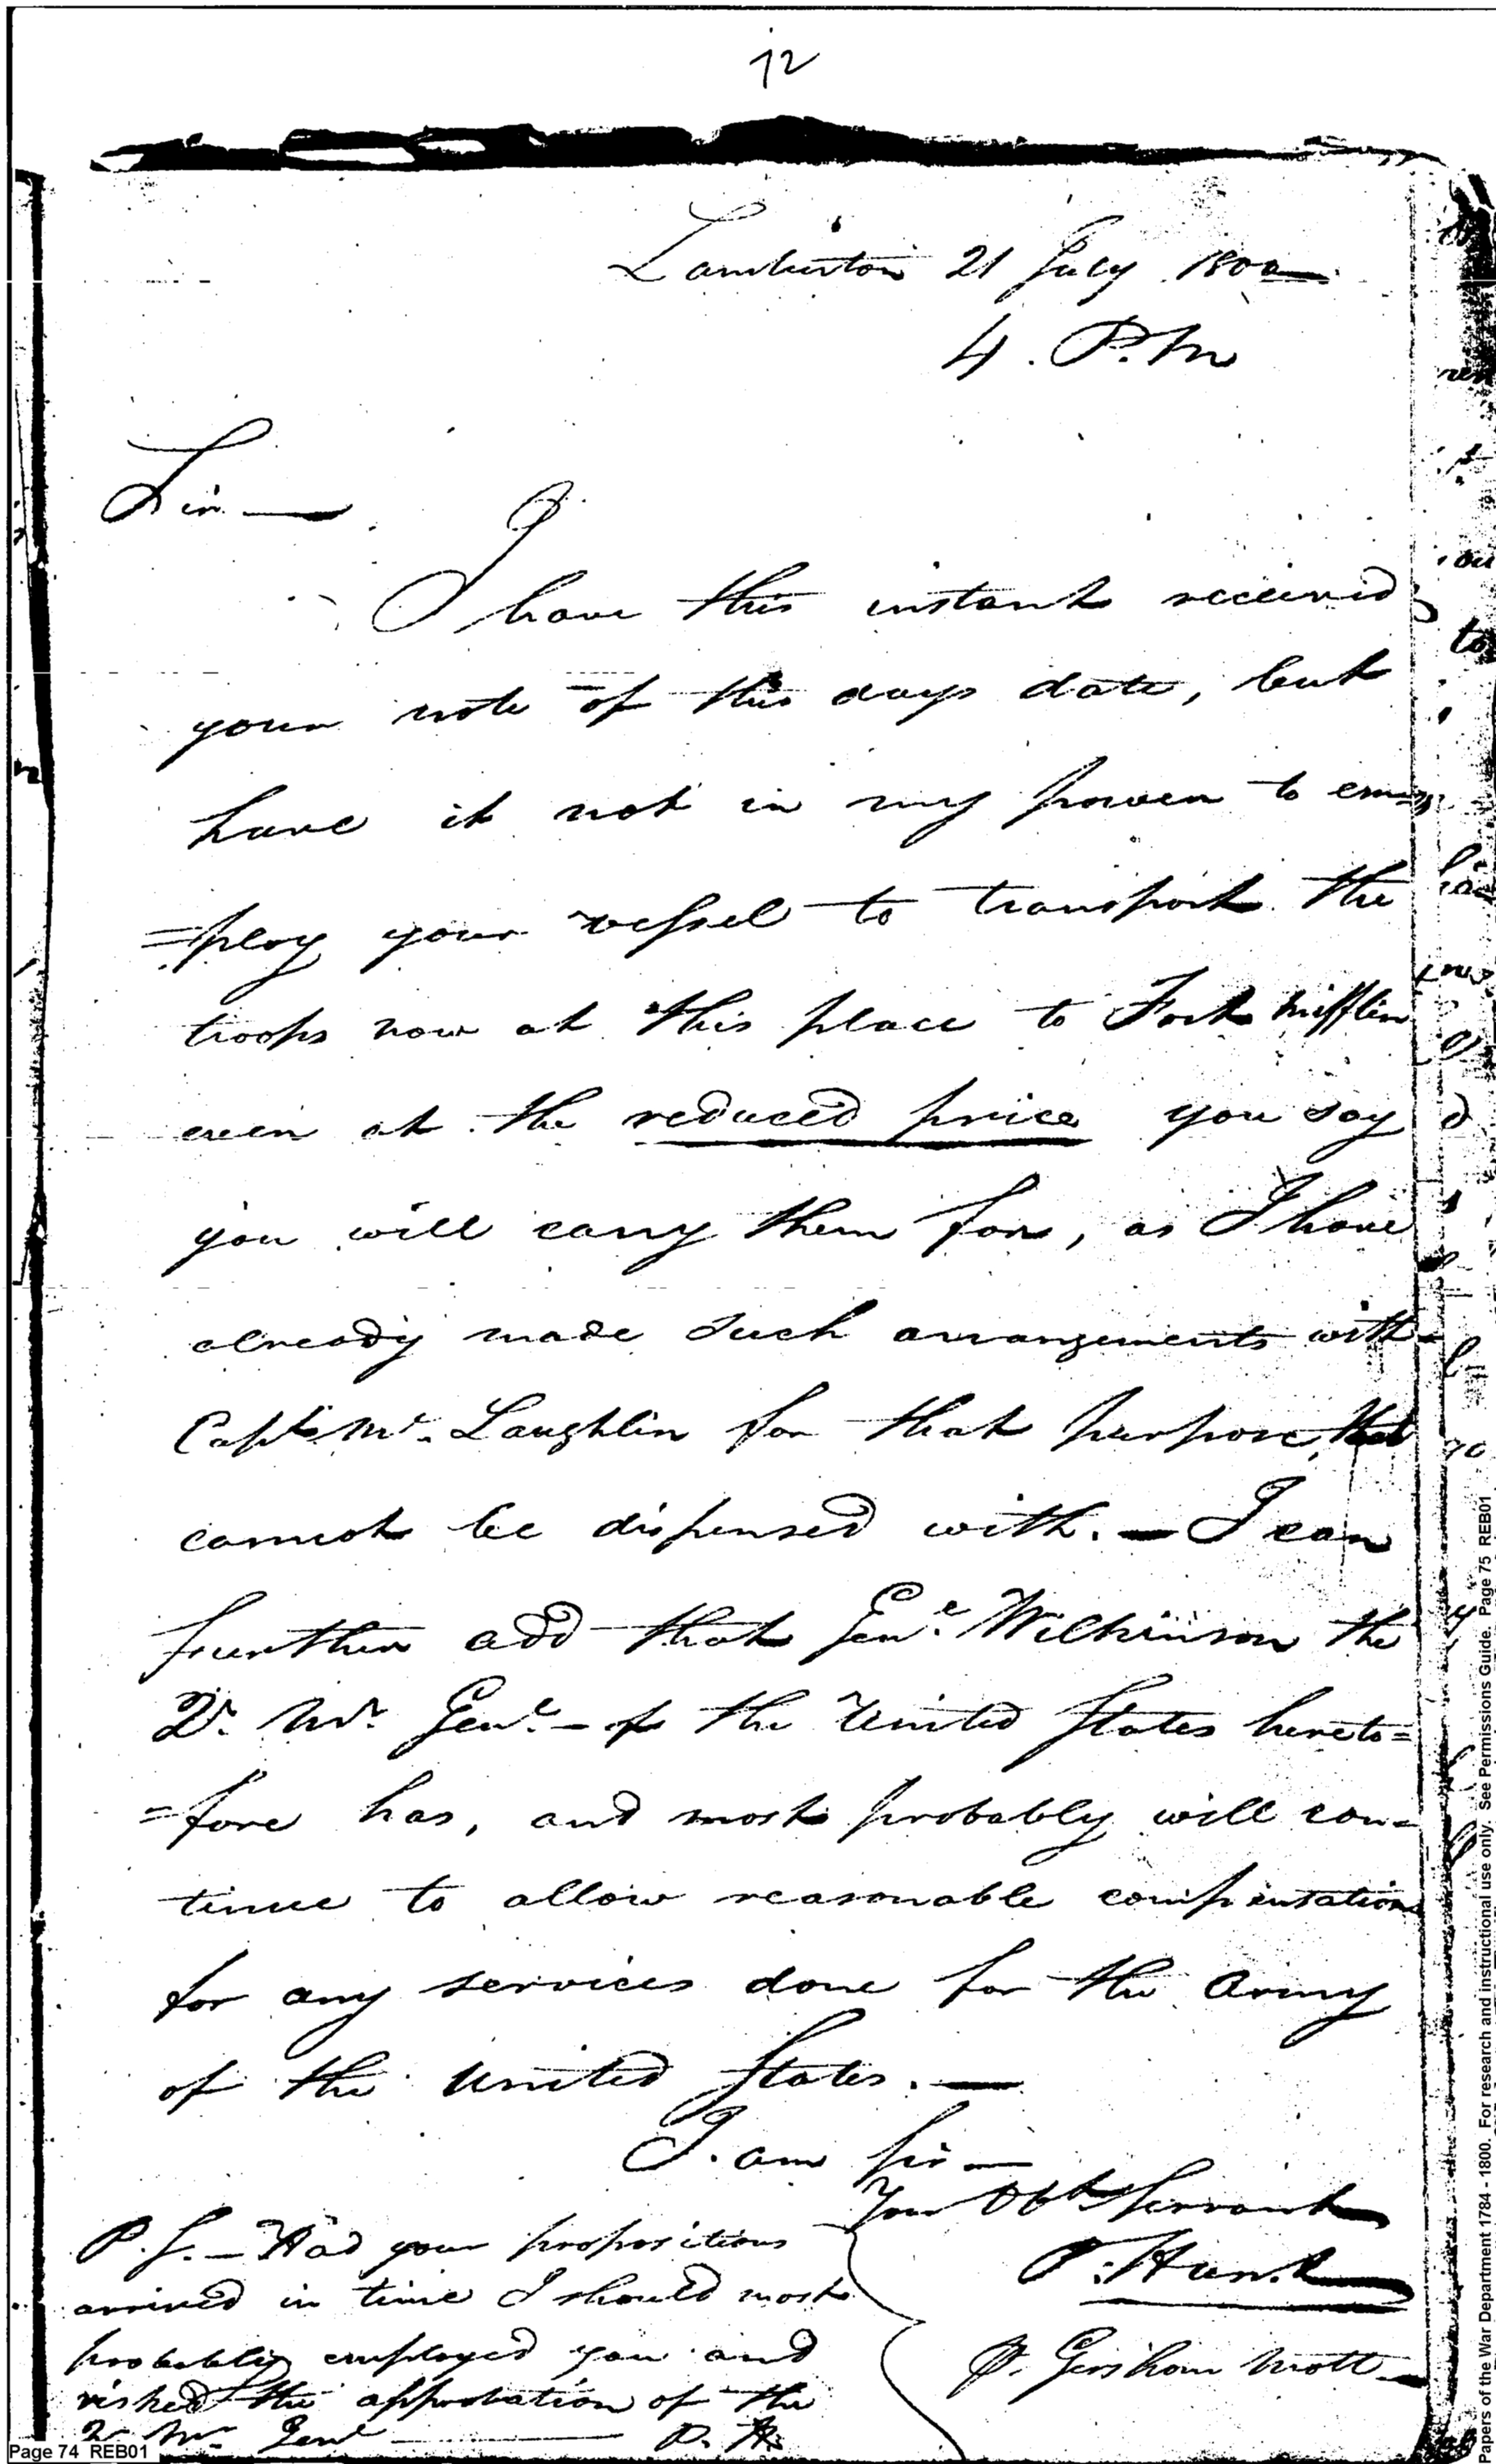 12
Lamberton 21 July 1800
4. P.M
Sir —
I have this instant received
your note of this days date, but
have it not in my power to em=
=ploy your vessel to transport the
troops now at this place to Fort Mifflin
even at the reduced price you say
you will carry them for, as I have
already made such arrangements with
Capt. Mc. Laughlin for that purpose, that
cannot be dispensed with. — I can
further add that Genl. Wilkinson the
Qr. Mr. Genl. — of the United States hereto=
=fore has, and most probably will con=
tinue to allow reasonable compensation
for any services done for the Army
of the United States. —
I. am sir —
Your Obt Servant
P. Hunt
P. Gershom Mott
P.S. — Had your propositions
arrived in time I should most
probably employed you and
risked the approbation of the
Qr Mr. Genl — P. H.
Page 74 REB01
Papers of the War Department 1784 - 1800. For research and instructional use only. See Permissions Guide. Page 75 REB01